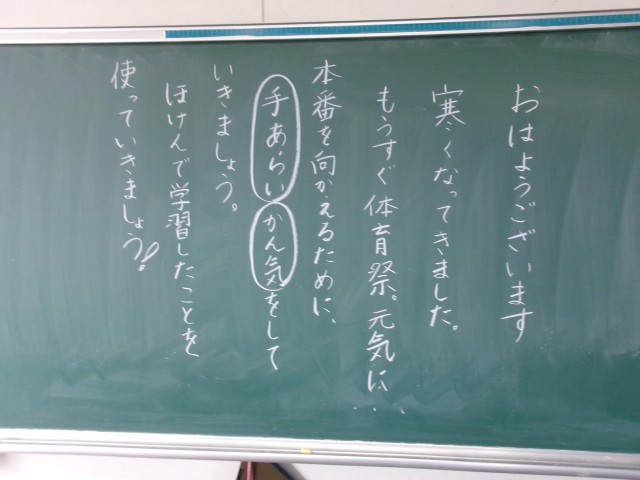 おはようございます
寒くなってきました。
もうすぐ体育祭。元気に
本番を向かえるために、
手あらいかん気をして
いきましょう。
ほけんで学習したことを
使っていきましょう!